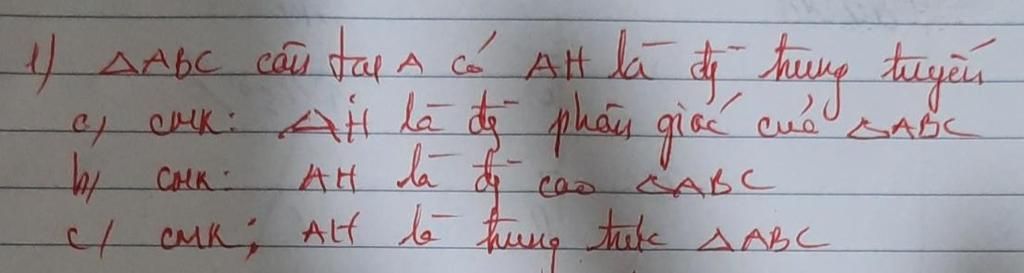 1) △ABC cân tại A có AH là đg trung tuyến
a) CMR: AH là đg phân giác của △ABC
b) CMR: AH là đg cao △ABC
c) CMR: AH là trung trực △ABC